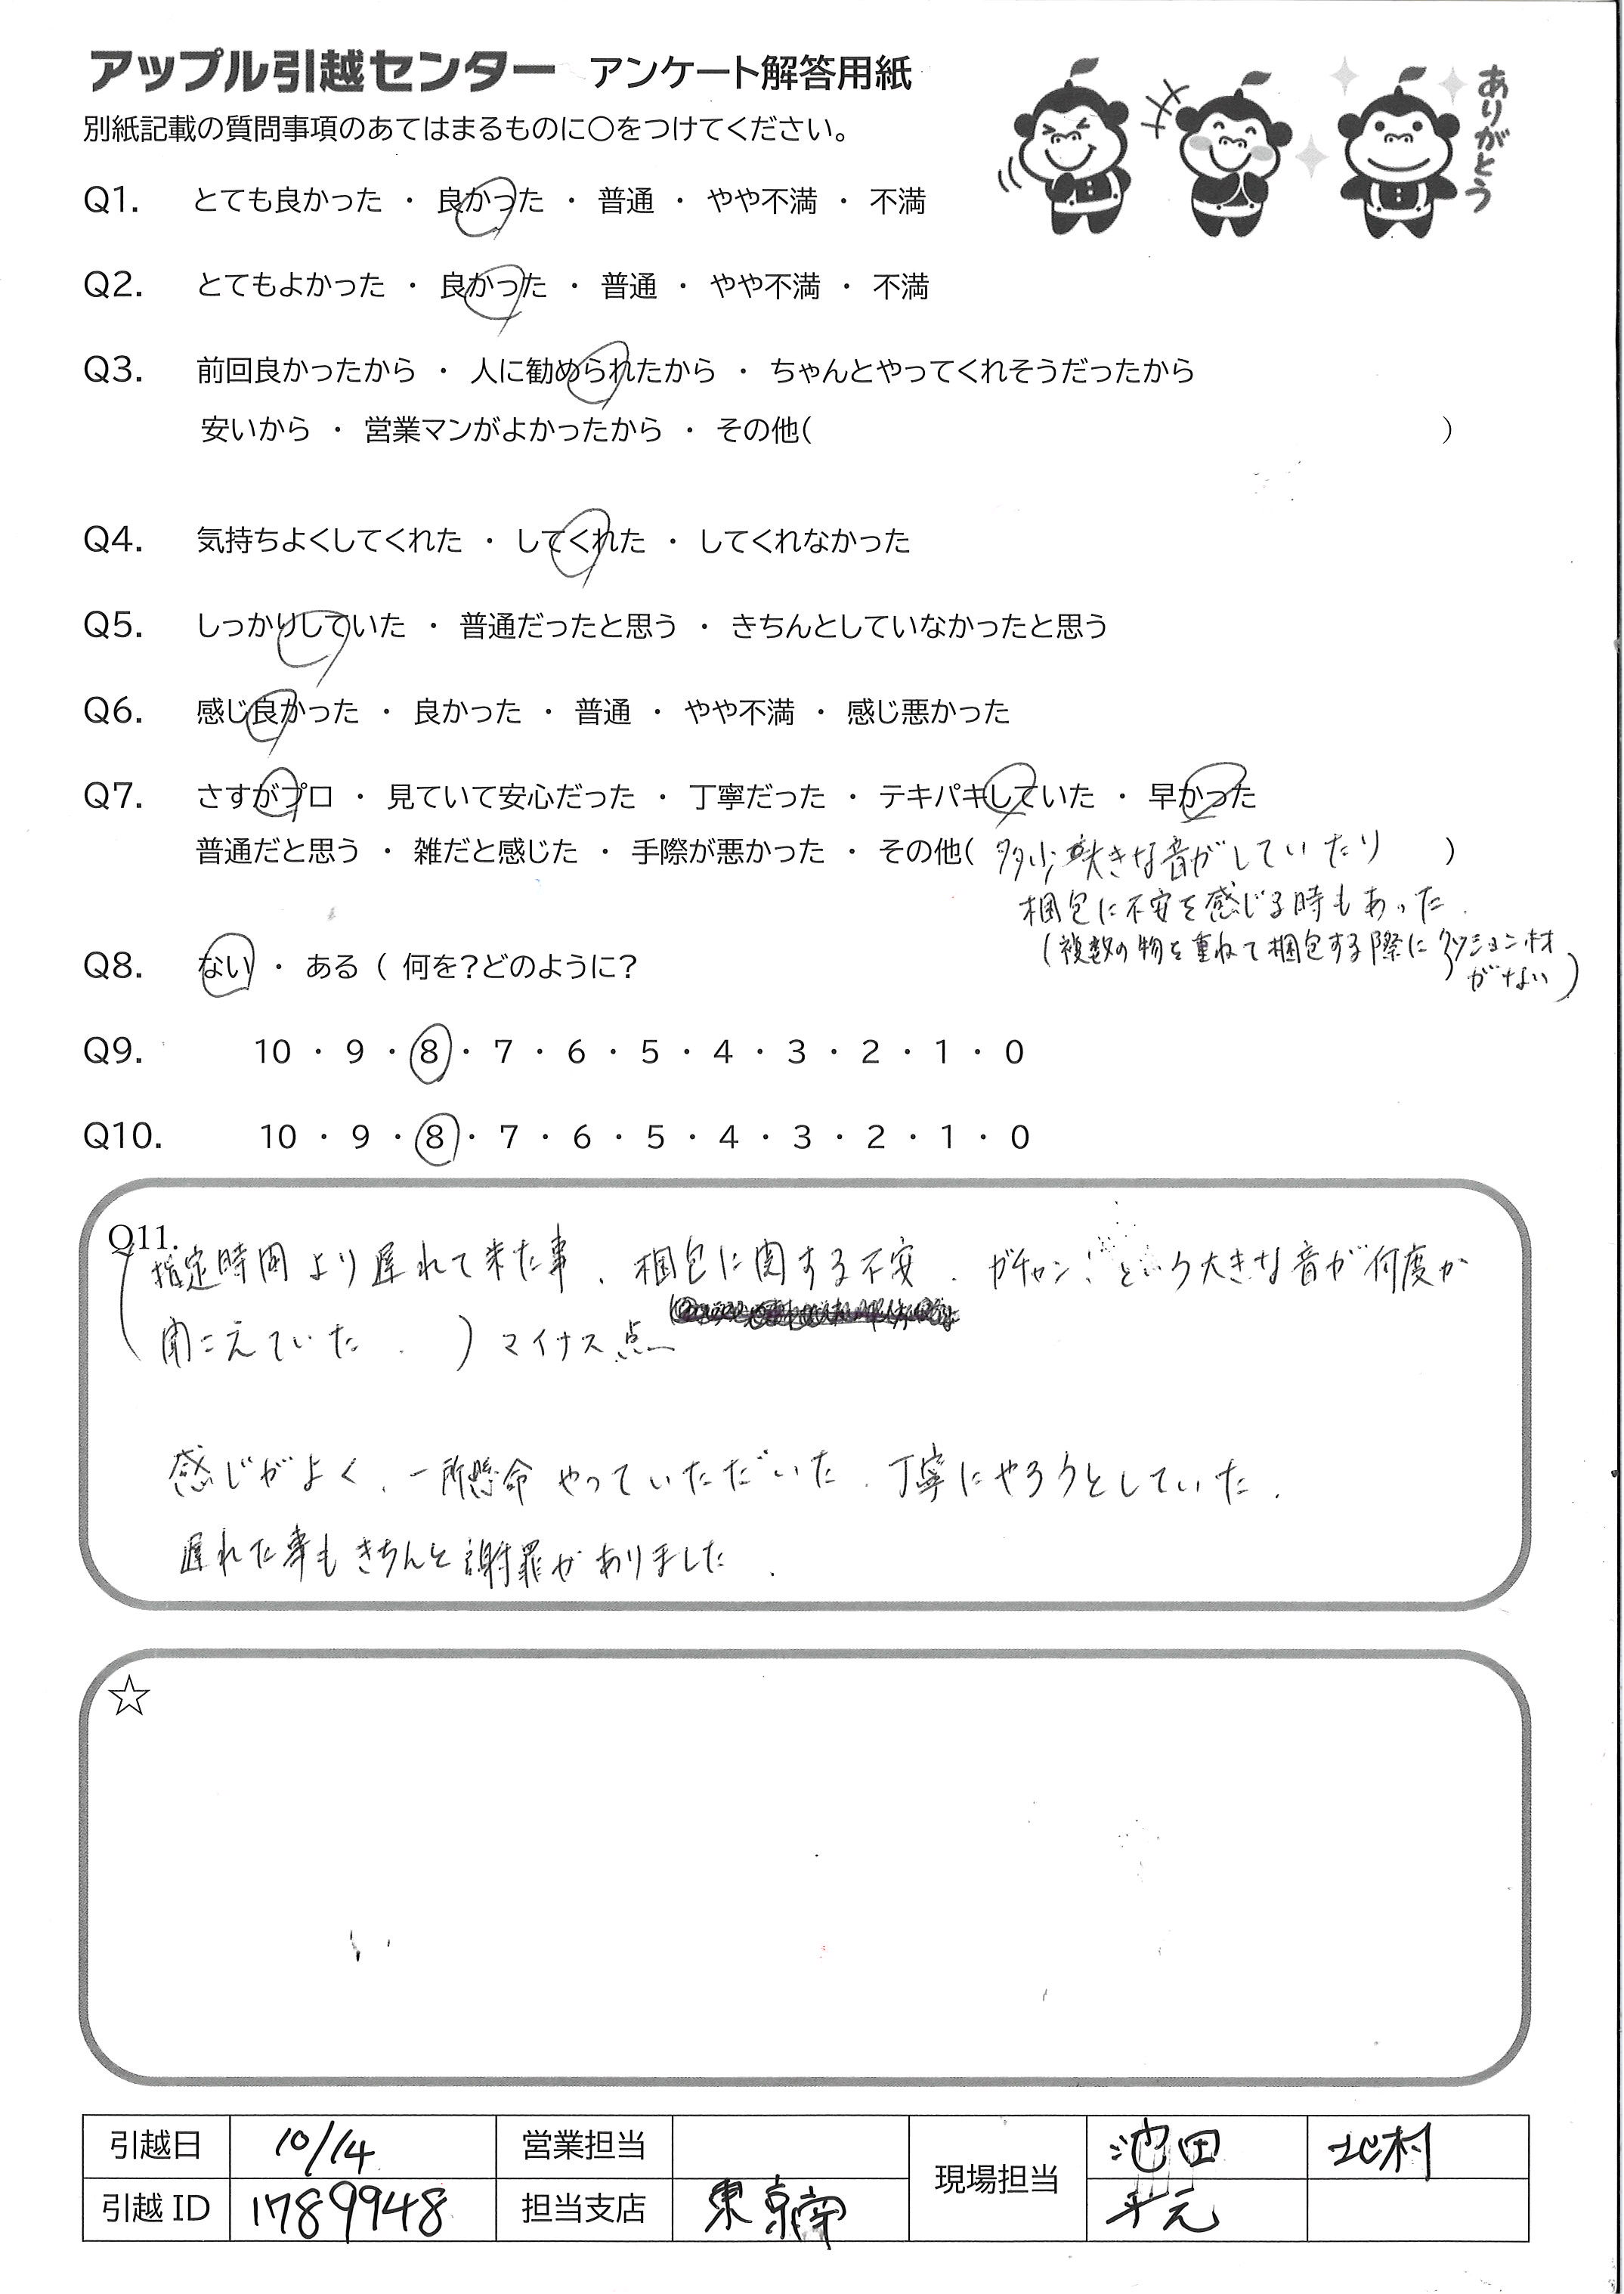 アップル引越センター アンケート解答用紙
別紙記載の質問事項のあてはまるものに○をつけてください。
ありがとう
Q1. とても良かった ・ 良かった ・ 普通 ・ やや不満 ・ 不満
Q2. とてもよかった ・ 良かった ・ 普通 ・ やや不満 ・ 不満
Q3. 前回良かったから ・ 人に勧められたから ・ ちゃんとやってくれそうだったから
安いから ・ 営業マンがよかったから ・ その他( )
Q4. 気持ちよくしてくれた ・ してくれた ・ してくれなかった
Q5. しっかりしていた ・ 普通だったと思う ・ きちんとしていなかったと思う
Q6. 感じ良かった ・ 良かった ・ 普通 ・ やや不満 ・ 感じ悪かった
Q7. さすがプロ ・ 見ていて安心だった ・ 丁寧だった ・ テキパキしていた ・ 早かった
普通だと思う ・ 雑だと感じた ・ 手際が悪かった ・ その他( 多少大きな音がしていたり )
梱包に不安を感じる時もあった.
(複数の物を重ねて梱包する際にクッション材
がない)
Q8. ない ・ ある ( 何を?どのように?
Q9. 10 ・ 9 ・ 8 ・ 7 ・ 6 ・ 5 ・ 4 ・ 3 ・ 2 ・ 1 ・ 0
Q10. 10 ・ 9 ・ 8 ・ 7 ・ 6 ・ 5 ・ 4 ・ 3 ・ 2 ・ 1 ・ 0
Q11.
(指定時間より遅れて来た事、梱包に関する不安、ガチャン!という大きな音が何度か
聞こえていた.) マイナス点
感じがよく、一所懸命やっていただいた.丁寧にやろうとしていた.
遅れた事もきちんと謝罪がありました.
☆
引越日 10/14 営業担当 現場担当 池田 北村
引越ID 1789948 担当支店 東京南 平元